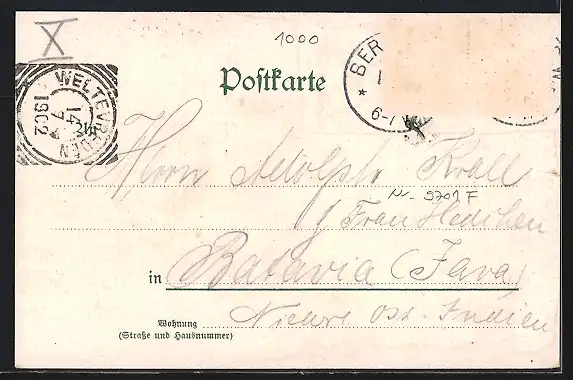 X
1000
Postkarte
BER
6-7
WELTEVREDEN
14
7
1902
Herrn Adolph Krall
N- 9701 F
Batavia (Java)
in
Niedre Ost-Indien
Wohnung
(Straße und Hausnummer)